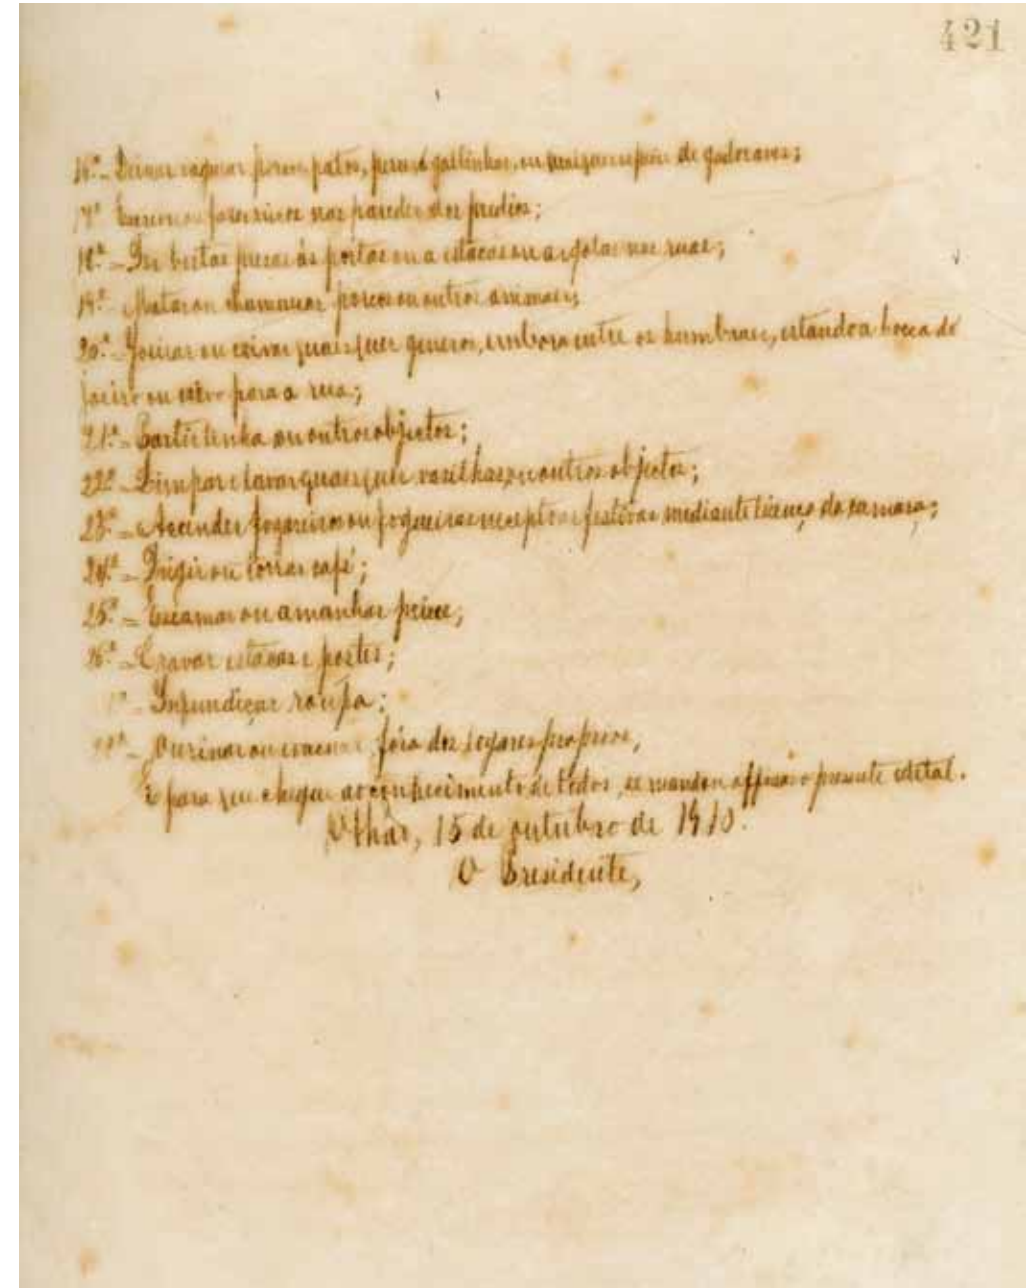 421
16.ª - Deixar vaguear porcos, patos, perús, gallinhas, ou quaesquer especies de gado e aves;
17.ª Escrever ou fazer riscos nas paredes dos predios;
18.ª - Ter bestas prezas ás portas ou a estacas ou argolas nas ruas;
19.ª - Matar ou chamuscar porcos ou outros animaes;
20.ª - Joeirar ou crivar quaesquer generos, embora entre os humbraes, estando a bocca do
joeiro ou crivo para a rua;
21.ª - Partir lenha ou outros objectos;
22.ª - Limpar e lavar quaesquer vasilhas, ou outros objectos;
23.ª - Accender fogareiros ou fogueiras excepto as festivas mediante licença da camara;
24.ª - Frigir ou torrar café;
25.ª - Escamar ou amanhar peixe;
26.ª - Cravar estacas e postes;
- Infundiçar roupa;
- Ourinar ou evacuar fóra dos logares proprios,
E para que chegue ao conhecimento de todos, se mandou affixar o presente edital.
Olhão, 15 de outubro de 1910.
O Presidente,